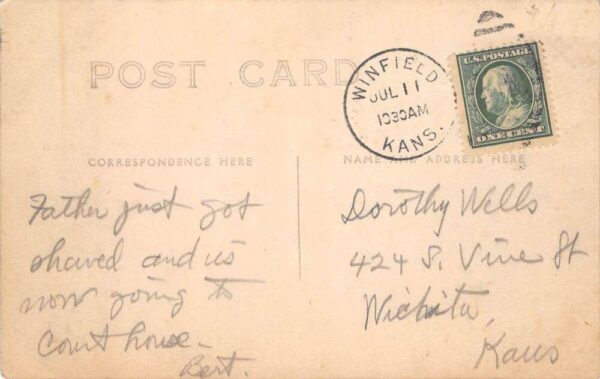 POST CARD
WINFIELD
JUL 11
1030AM
KANS.
U.S. POSTAGE
ONE CENT
CORRESPONDENCE HERE
NAME AND ADDRESS HERE
Father just got
shaved and is
now going to
Court house -
Bert.
Dorothy Wells
424 S. Vine St
Wichita,
Kans